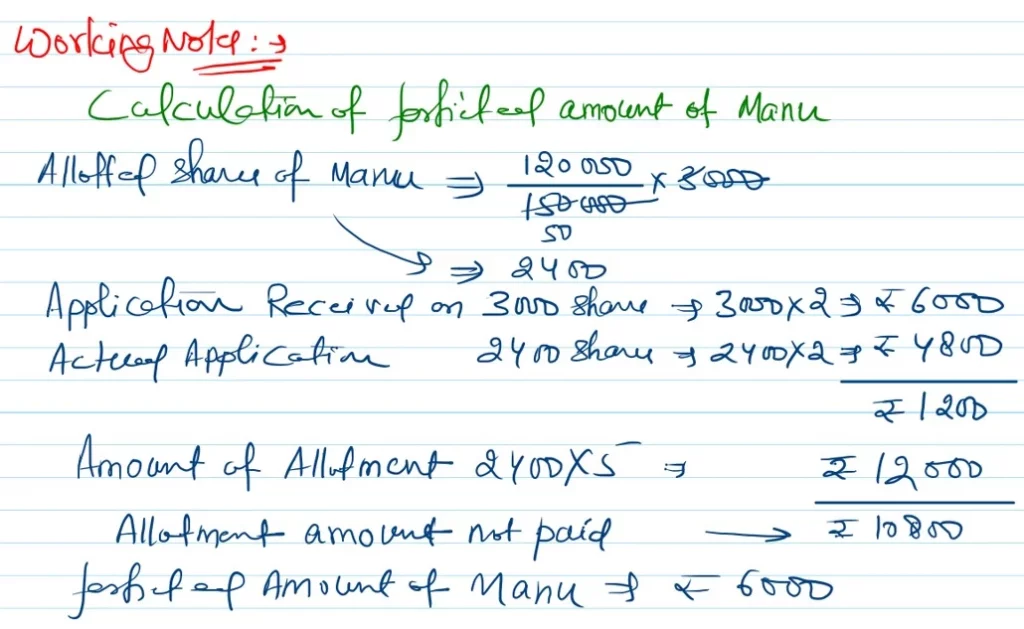 Working Note:→
Calculation of forficted amount of Manu
Allotted share of Manu ⇒ 120000 × 3000
150000
50
⇒ 2400
Application Received on 3000 share → 3000×2 ⇒ ₹ 6000
Actual Application 2400 share → 2400×2 ⇒ ₹ 4800
₹ 1200
Amount of Allotment 2400×5 ⇒ ₹ 12000
Allotment amount not paid → ₹ 10800
forfited Amount of Manu ⇒ ₹ 6000